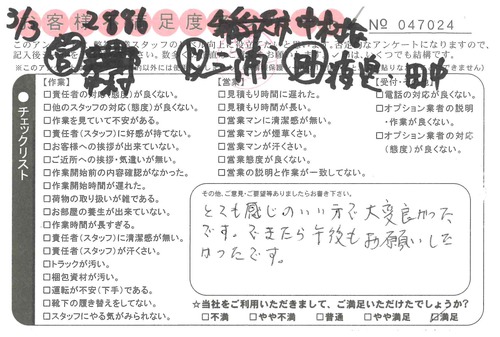 3/3 2886
お客様 足度 No 047024
【作業】
□責任者の対応(態度)が良くない。
□他のスタッフの対応(態度)が良くない。
□作業を見ていて不安がある。
□責任者(スタッフ)に好感が持てない。
□お客様への挨拶が出来ていない。
□ご近所への挨拶・気遣いが無い。
□作業開始前の内容確認がなかった。
□作業開始時間が遅れた。
□荷物の取り扱いが雑である。
□お部屋の養生が出来ていない。
□作業時間が長すぎる。
□責任者(スタッフ)に清潔感が無い。
□責任者(スタッフ)が汗くさい。
□トラックが汚い。
□梱包資材が汚い。
□運転が不安(下手)である。
□靴下の履き替えをしてない。
□スタッフにやる気がみられない。
【営業】
□見積もり時間に遅れた。
□見積もり時間が長い。
□営業マンに清潔感が無い。
□営業マンが煙草くさい。
□営業マンが汗くさい。
□営業態度が良くない。
□営業の説明と作業が一致してない。
□電話の対応が良くない。
□オプション業者の説明
・作業が良くない。
□オプション業者の対応
(態度)が良くない。
チェックリスト
その他、ご意見・ご要望等ありましたらお書き下さい。
とても感じのいい方で大変良かった
です。できたら午後もお願いした
かったです。
☆当社をご利用いただきまして、ご満足いただけたでしょうか?
□不満 □やや不満 □普通 □やや満足 ☑満足